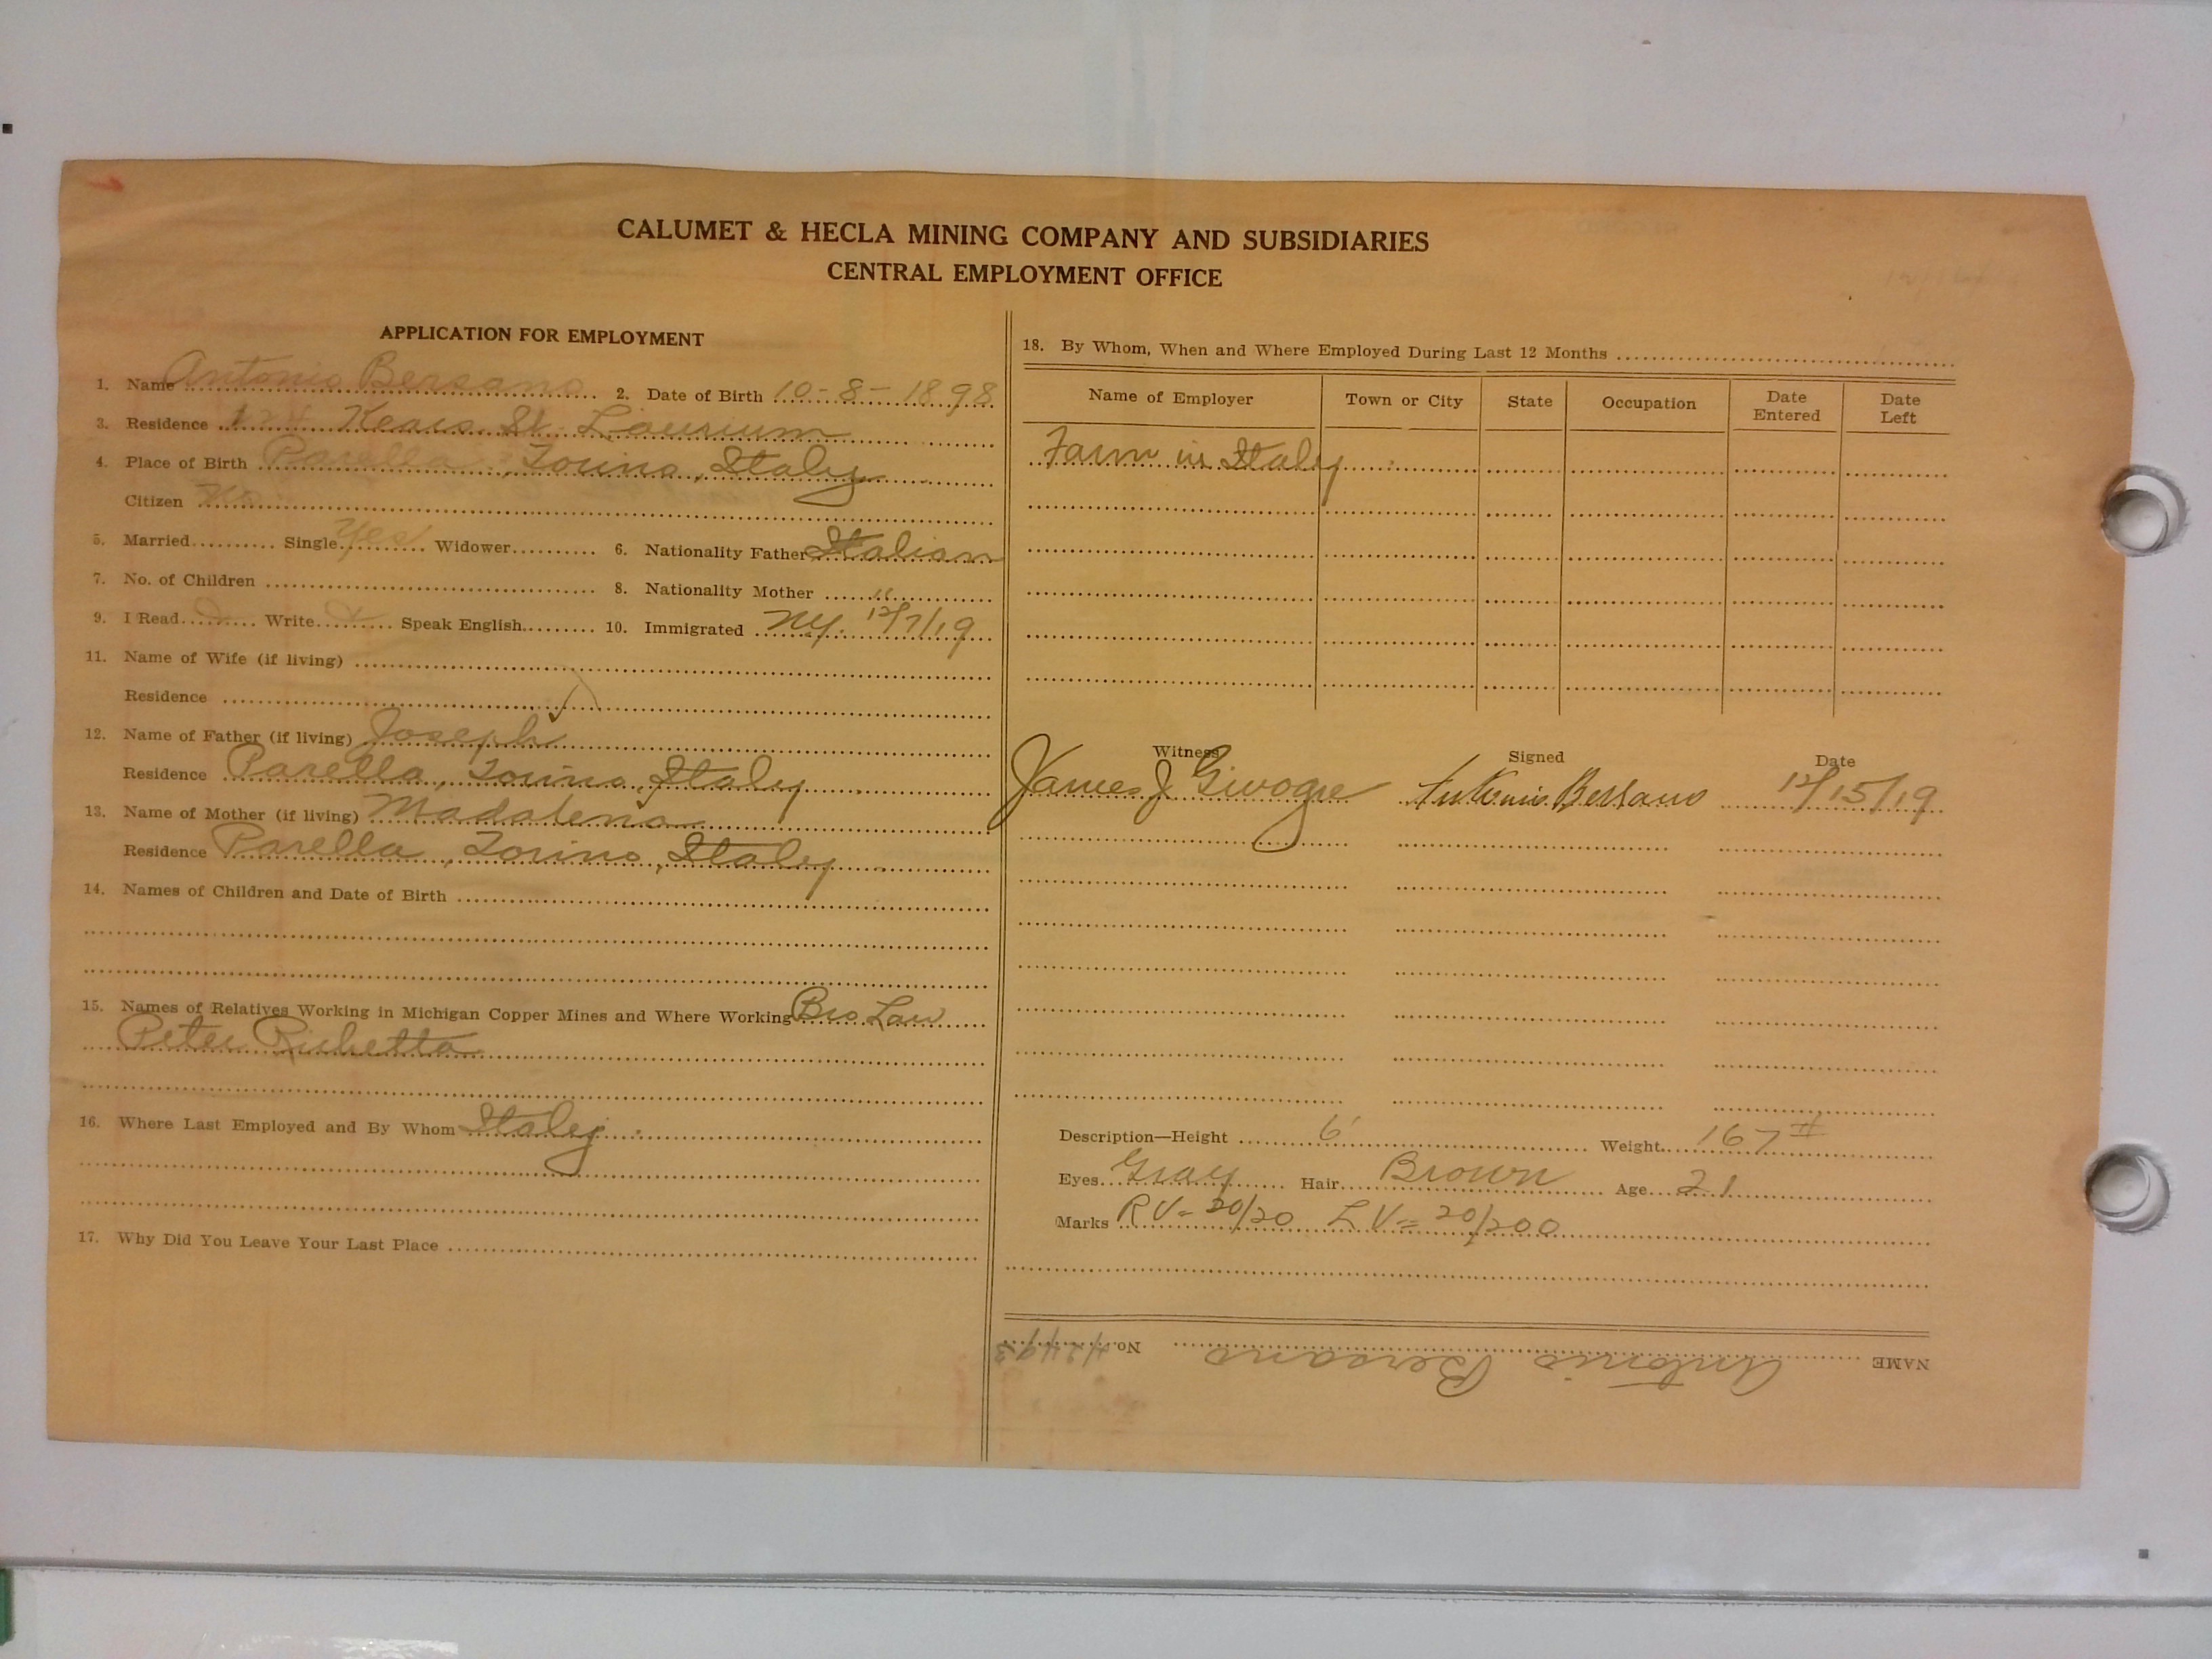 CALUMET & HECLA MINING COMPANY AND SUBSIDIARIES
CENTRAL EMPLOYMENT OFFICE
APPLICATION FOR EMPLOYMENT
1. Name Antonio Bersano 2. Date of Birth 10-8-1898
3. Residence Kears. St. Laurium
4. Place of Birth Parella, Torino, Italy
Citizen No
5. Married Single Yes Widower 6. Nationality Father Italian
7. No. of Children 8. Nationality Mother "
9. I Read Write Speak English 10. Immigrated NY. 12/7/19
11. Name of Wife (if living)
Residence
12. Name of Father (if living) Joseph
Residence Parella, Torino, Italy
13. Name of Mother (if living) Madalena
Residence Parella, Torino, Italy
14. Names of Children and Date of Birth
15. Names of Relatives Working in Michigan Copper Mines and Where Working Bro Law
Peter Richetta
16. Where Last Employed and By Whom Italy
17. Why Did You Leave Your Last Place
18. By Whom, When and Where Employed During Last 12 Months
Name of Employer Town or City State Occupation Date Entered Date Left
Farm in Italy
Witness Signed Date
James J Antonio Bersano 12/15/19
Description—Height 6' Weight 167 #
Eyes Gray Hair Brown Age 21
Marks RV= 20/20 LV= 20/200
NAME Antonio Bersano No.